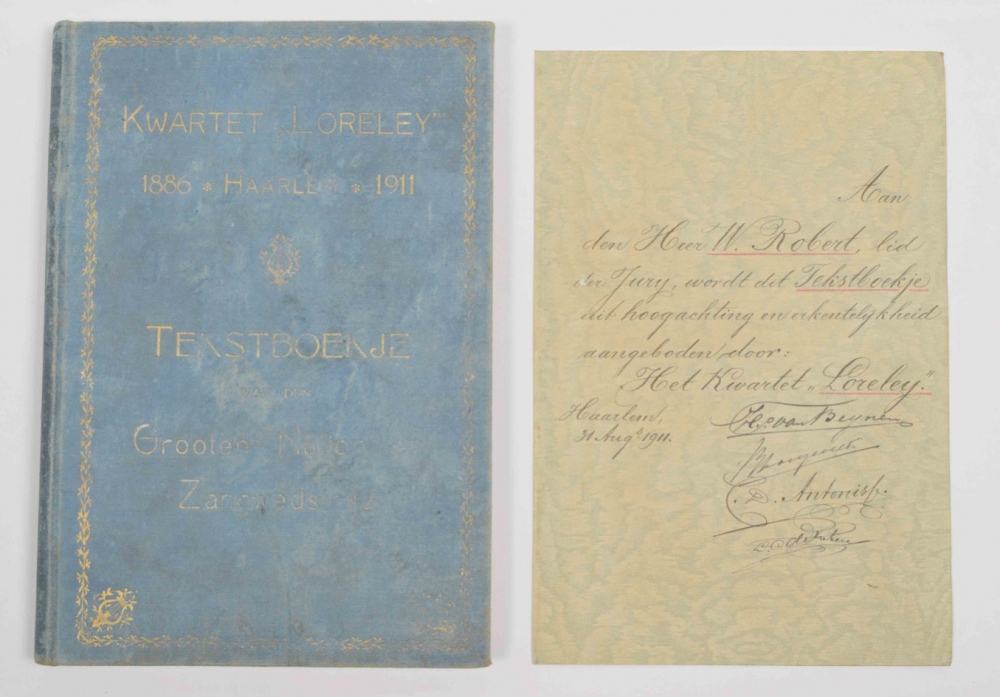 KWARTET „LORELEY”
1886 * HAARLEM * 1911
TEKSTBOEKJE
VAN DEN
Grooten
Aan
den Heer W. Robert, lid
der Jury, wordt dit Tekstboekje
uit hoogachting en erkentelijkheid
aangeboden door:
Het Kwartet „Loreley.”
Haarlem,
31 Augs 1911.
van Beynen
C. D. Antonisse.